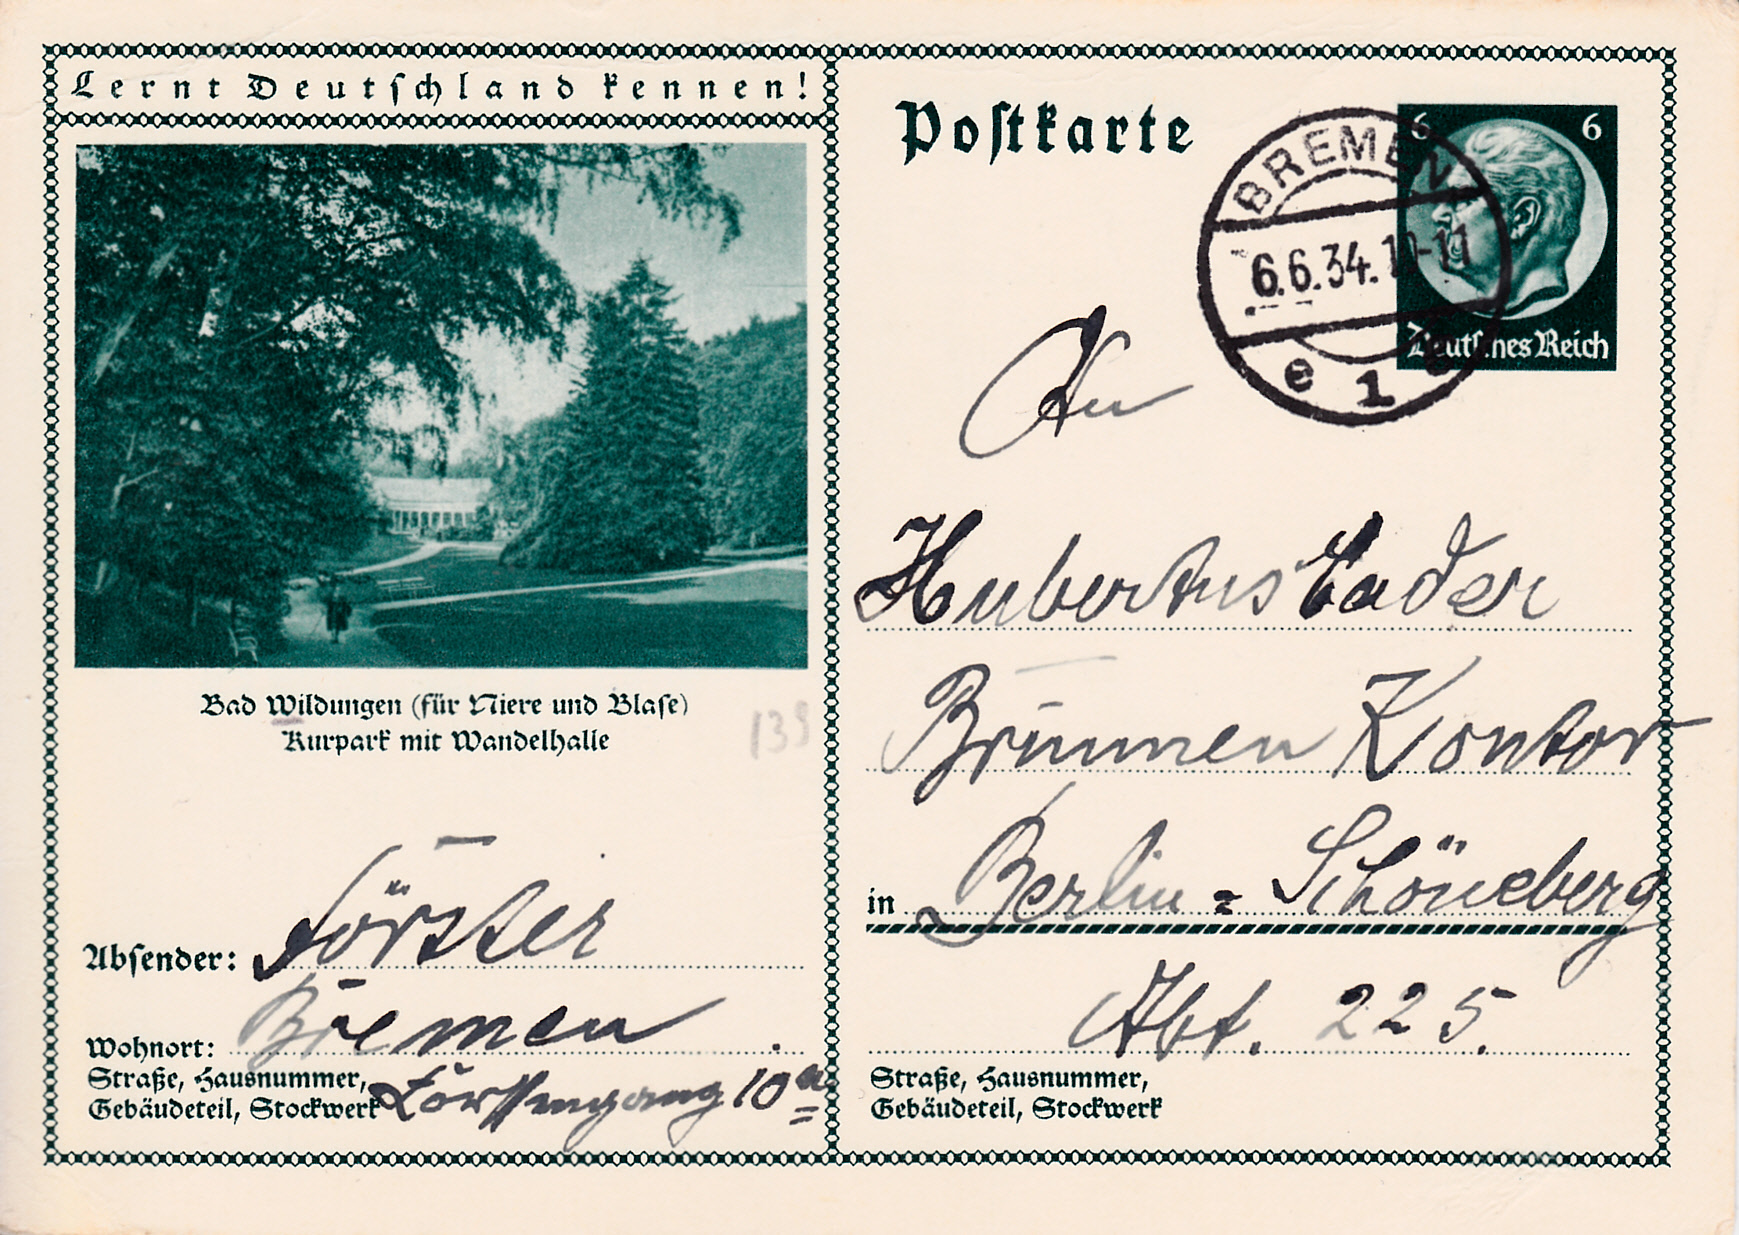 Lernt Deutschland kennen!
Bad Wildungen (für Niere und Blase)
Kurpark mit Wandelhalle
139
Absender: Förster
Wohnort: Bremen
Straße, Hausnummer,
Gebäudeteil, Stockwerk
10a
Postkarte
6 6
Deutsches Reich
BREMEN
6.6.34. 10-11
e 1 e
An
Hubertus Bader
Brunnen Kontor
in Berlin=Schöneberg
Abt. 225.
Straße, Hausnummer,
Gebäudeteil, Stockwerk